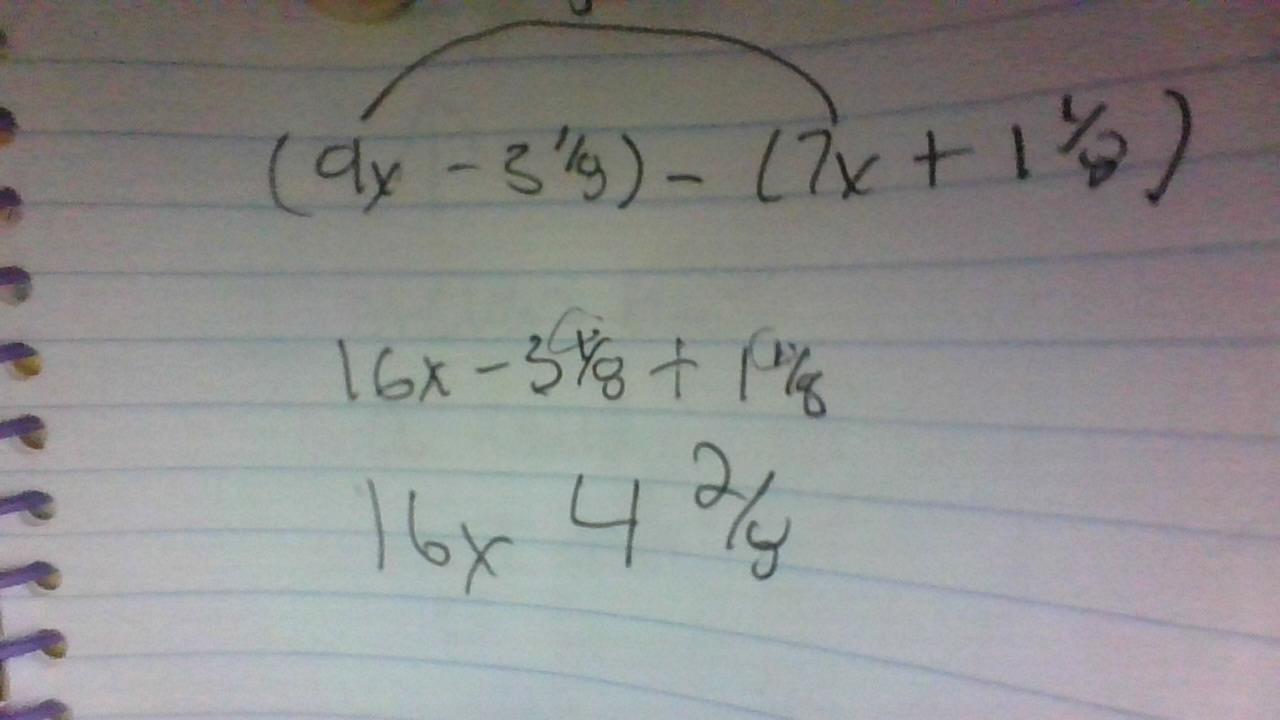 (9x - 3 1/8) - (7x + 1 1/8)
16x - 3 1/8 + 1 1/8
16x 4 2/8